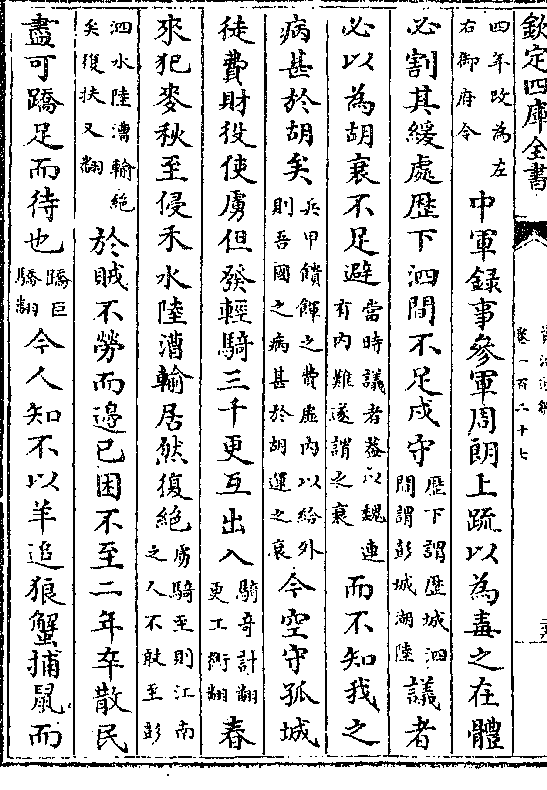 欽定四庫全書
卷一百二十七
四年改為左右御府令中軍録事參軍周朗上疏以為毒之在體
必割其緩處歴下泗間不足戍守歴下謂歴城泗間謂彭城湖陸議者
必以為胡衰不足避當時議者葢以魏連有内難遂謂之衰而不知我之
病甚於胡矣兵甲饋餫之費虛内以給外則吾國之病甚於胡運之衰今空守孤城
徒費財役使虜但發輕騎三千更互出入騎奇計翻更工衡翻春
來犯麥秋至侵禾水陸漕輸居然復絶虜騎至則江南之人不敢至彭
泗水陸漕輸絶矣復扶又翻於賊不勞而邊已困不至二年卒散民
盡可蹻足而待也蹻巨驕翻今人知不以羊追狼蟹捕鼠而